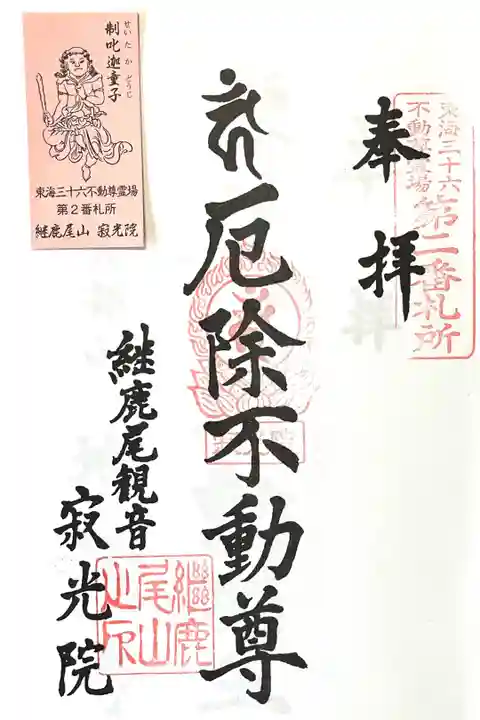 東海三十六
不動尊霊場
第二番札所
奉拝
厄除不動尊
継鹿尾観音
寂光院
継鹿
尾山
之印
せいたかどうじ
制吒迦童子
東海三十六不動尊霊場
第2番札所
継鹿尾山 寂光院